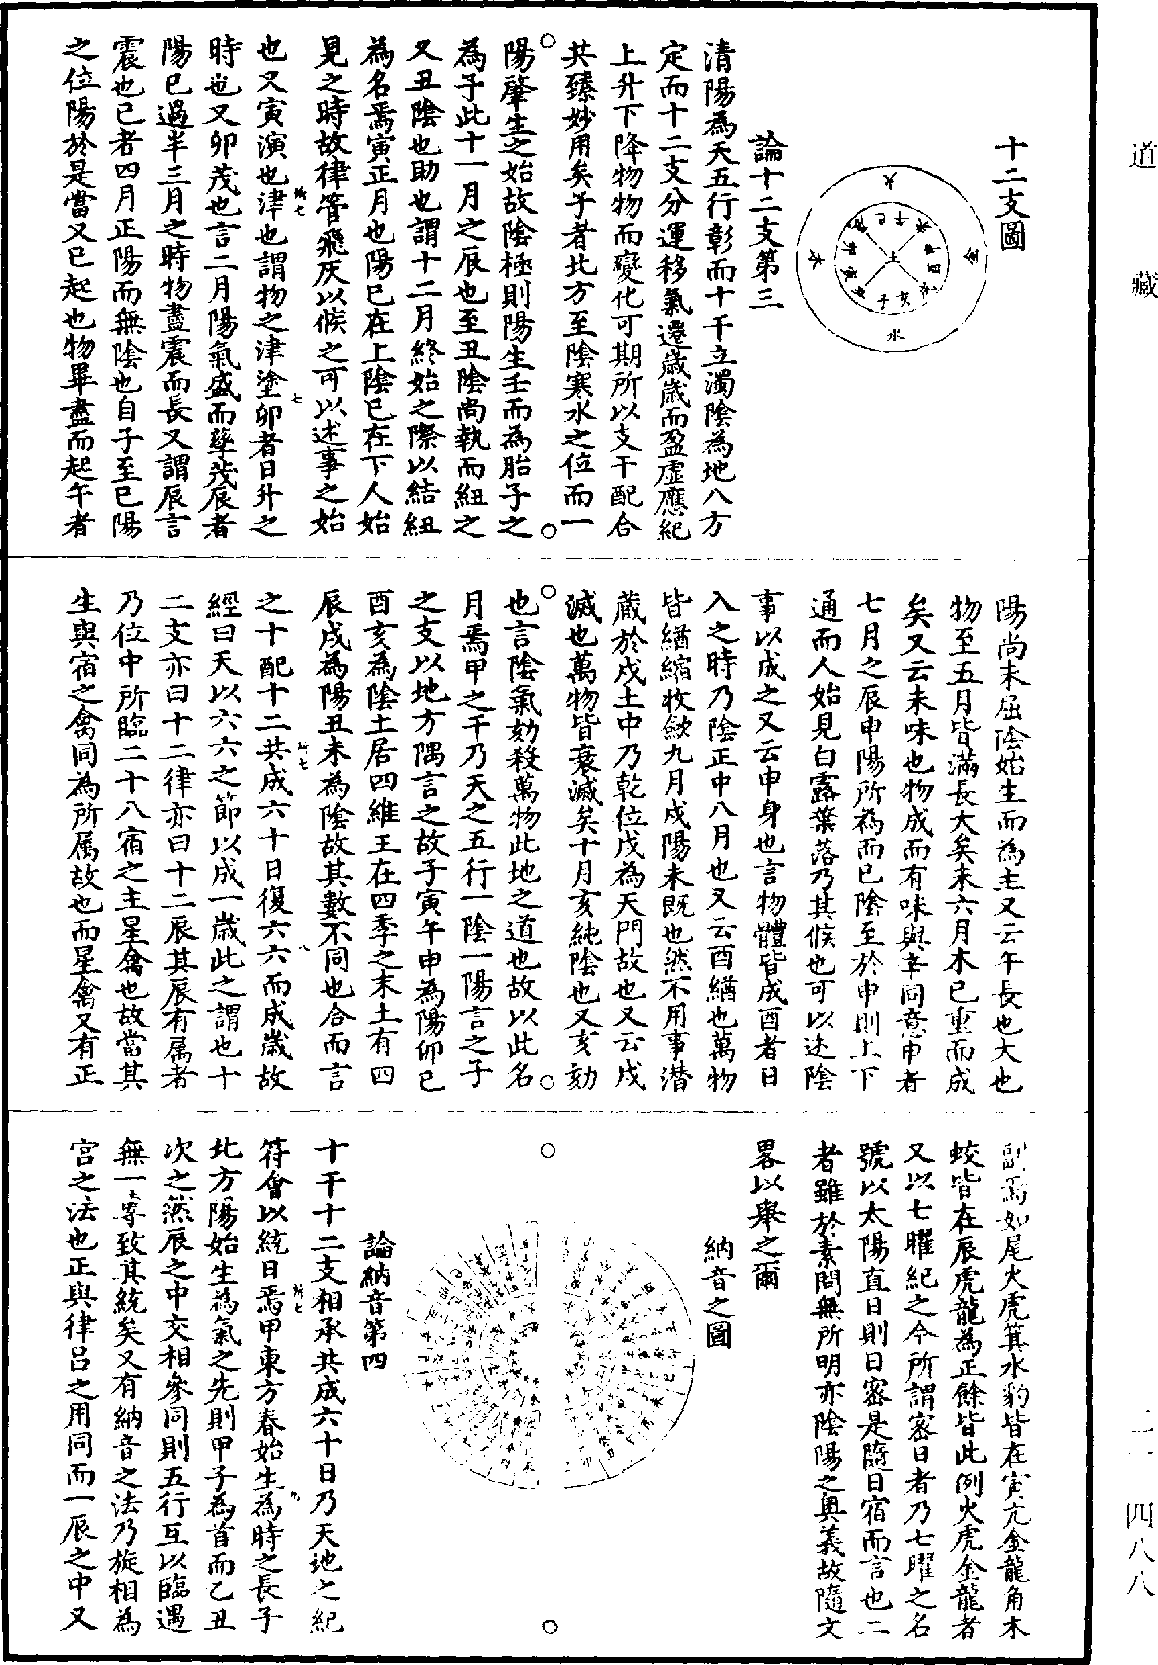 道藏
十二支圖
火
金
木
水
土
論十二支第三
清陽為天五行彰而十干立濁陰為地八方
定而十二支分運移氣遷歲歲而盈虛應紀
上升下降物物而變化可期所以支干配合
共臻妙用矣子者北方至陰寒水之位而一
陽肇生之始故陰極則陽生壬而為胎子之
為子此十一月之辰也至丑陰尚執而紐之
又丑陰也助也謂十二月終始之際以結紐
為名焉寅正月也陽已在上陰已在下人始
見之時故律管飛灰以候之可以述事之始
也又寅演也津也謂物之津塗卯者日升之
時也又卯茂也言二月陽氣盛而孳茂辰者
陽已過半三月之時物盡震而長又謂辰言
震也巳者四月正陽而無陰也自子至巳陽
之位陽於是當又巳起也物畢盡而起午者
陽尚未屈陰始生而為主又云午長也大也
物至五月皆滿長大矣未六月木已重而成
矣又云未味也物成而有味與辛同意申者
七月之辰申陽所為而已陰至於申則上下
通而人始見白露葉落乃其候也可以述陰
事以成之又云申身也言物體皆成酉者日
入之時乃陰正中八月也又云酉緧也萬物
皆緧縮收斂九月戌陽未既也然不用事潛
藏於戌土中乃乾位戌為天門故也又云戌
滅也萬物皆衰滅矣十月亥純陰也又亥劾
也言陰氣劾殺萬物此地之道也故以此名
月焉甲之干乃天之五行一陰一陽言之子
之支以地方隅言之故子寅午申為陽卯巳
酉亥為陰土居四維王在四季之末土有四
辰戌為陽丑未為陰故其數不同也合而言
之十配十二共成六十日復六六而成歲故
經曰天以六六之節以成一歲此之謂也十
二支亦曰十二律亦曰十二辰其辰有屬者
乃位中所臨二十八宿之主星禽也故當其
生與宿之禽同為所屬故也而星禽又有正
副焉如尾火虎箕水豹皆在寅亢金龍角木
蛟皆在辰虎龍為正餘皆此例火虎金龍者
又以七曜紀之今所謂密日者乃七曜之名
號以太陽直日則日密是隨日宿而言也二
者雖於素問無所明亦陰陽之奧義故隨文
畧以舉之爾
納音之圖
論納音第四
十干十二支相承共成六十日乃天地之紀
符會以統日焉甲東方春始生為時之長子
北方陽始生為氣之先則甲子為首而乙丑
次之然辰之中交相參同則五行互以臨遇
無一專致其統矣又有納音之法乃旋相為
宮之法也正與律呂之用同而一辰之中又
四八八